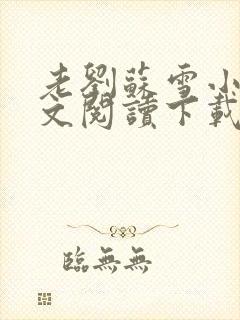 老劉蘇雪小
文閱讀下載
臨無無